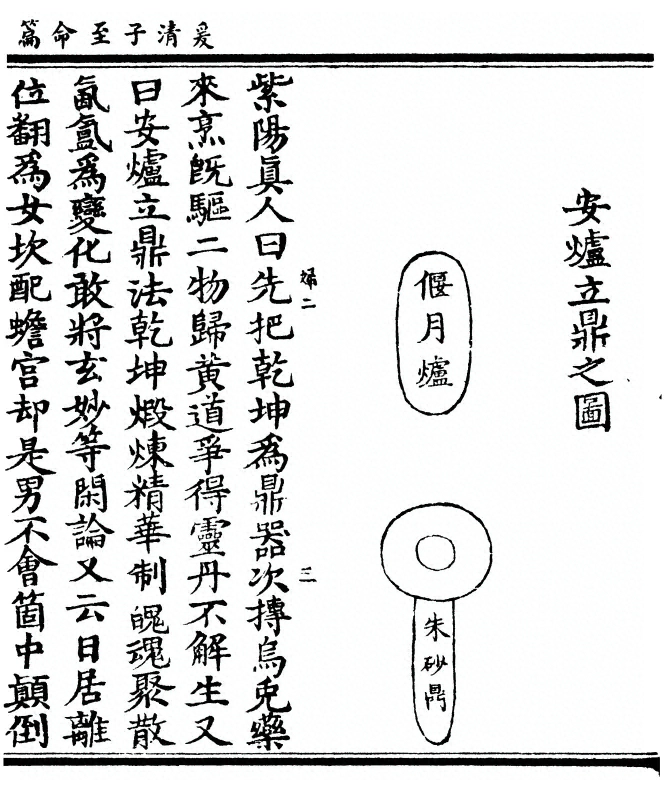 爰清子至命篇
安爐立鼎之圖
偃月爐
朱砂鼎
紫陽眞人曰先把乾坤爲鼎器次摶烏兎藥
婦二
三
來烹旣驅二物歸黄道爭得靈丹不解生又
曰安爐立鼎法乾坤煅煉精華制魄魂聚散
氤氳爲變化敢將玄妙等閑論又云日居離
位翻爲女坎配蟾宫却是男不會箇中顛倒